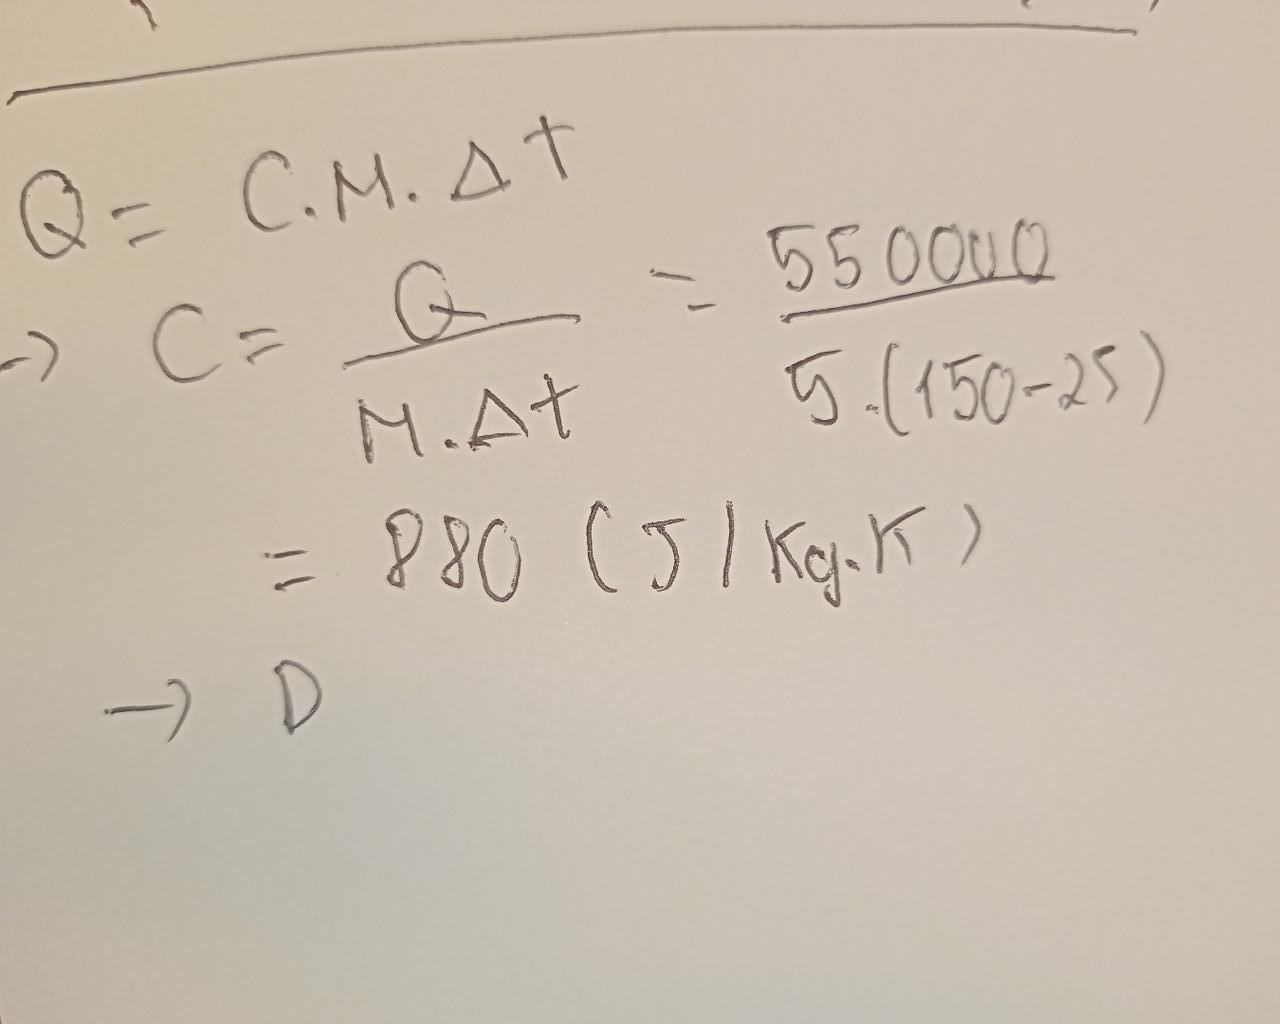 Q = C.M.Δt
→ C = Q / M.Δt = 550000 / 5.(150-25)
= 880 (J/Kg.K)
→ D